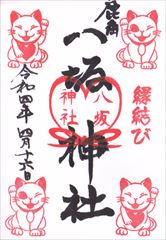 佳角
縁結び
八坂神社
八坂
神社
令和四年四月十六日